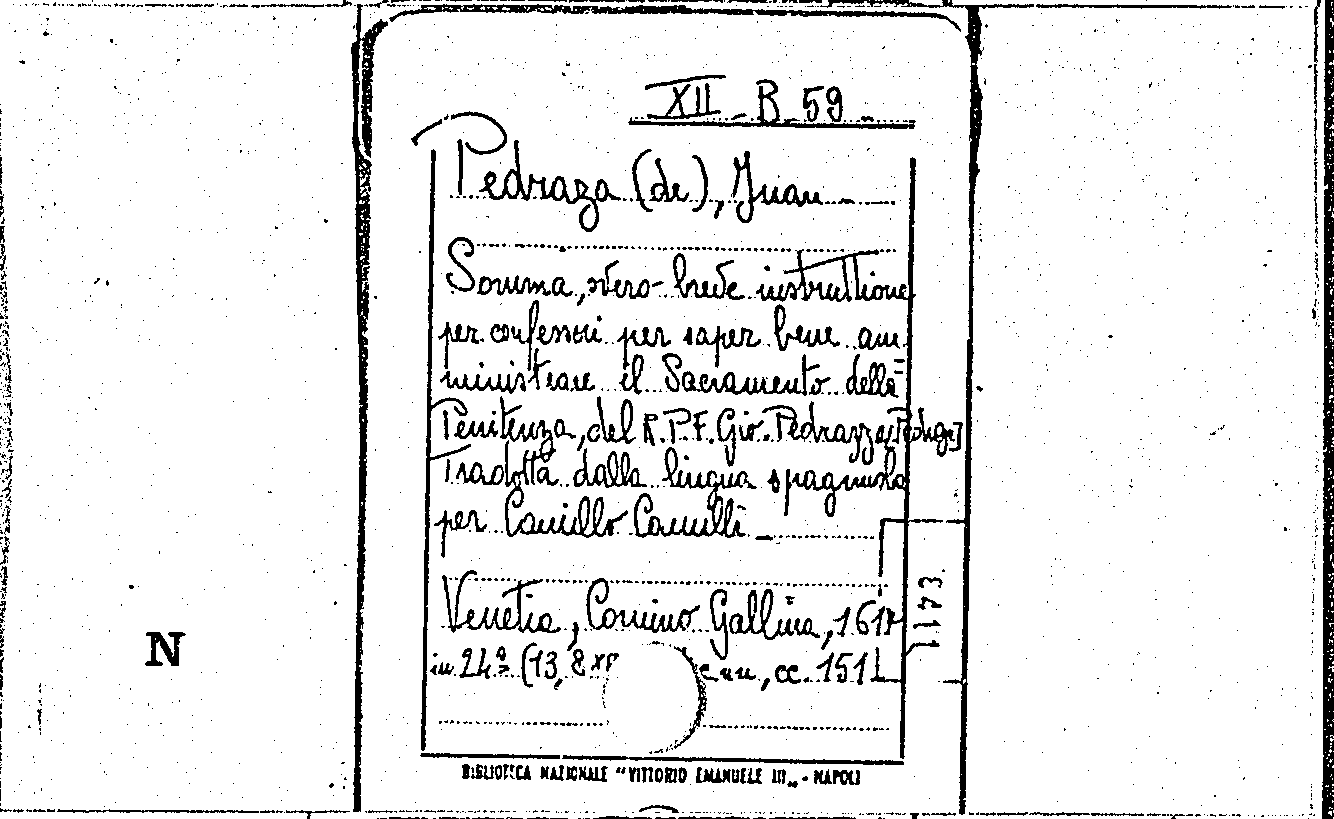 XII B 59
Pedraza (de), Juan
Somma, overo breve instruttione
per confessori per saper bene am=
ministrare il Sacramento della
Penitenza, del R.P.F. Gio. Pedrazza
Tradotta dalla lingua spagnuola
per Camillo Camilli
Venetia, Comino Gallina, 161
in 24º (13,8x c. nn., cc. 151
N
BIBLIOTECA NAZIONALE "VITTORIO EMANUELE III„ - NAPOLI